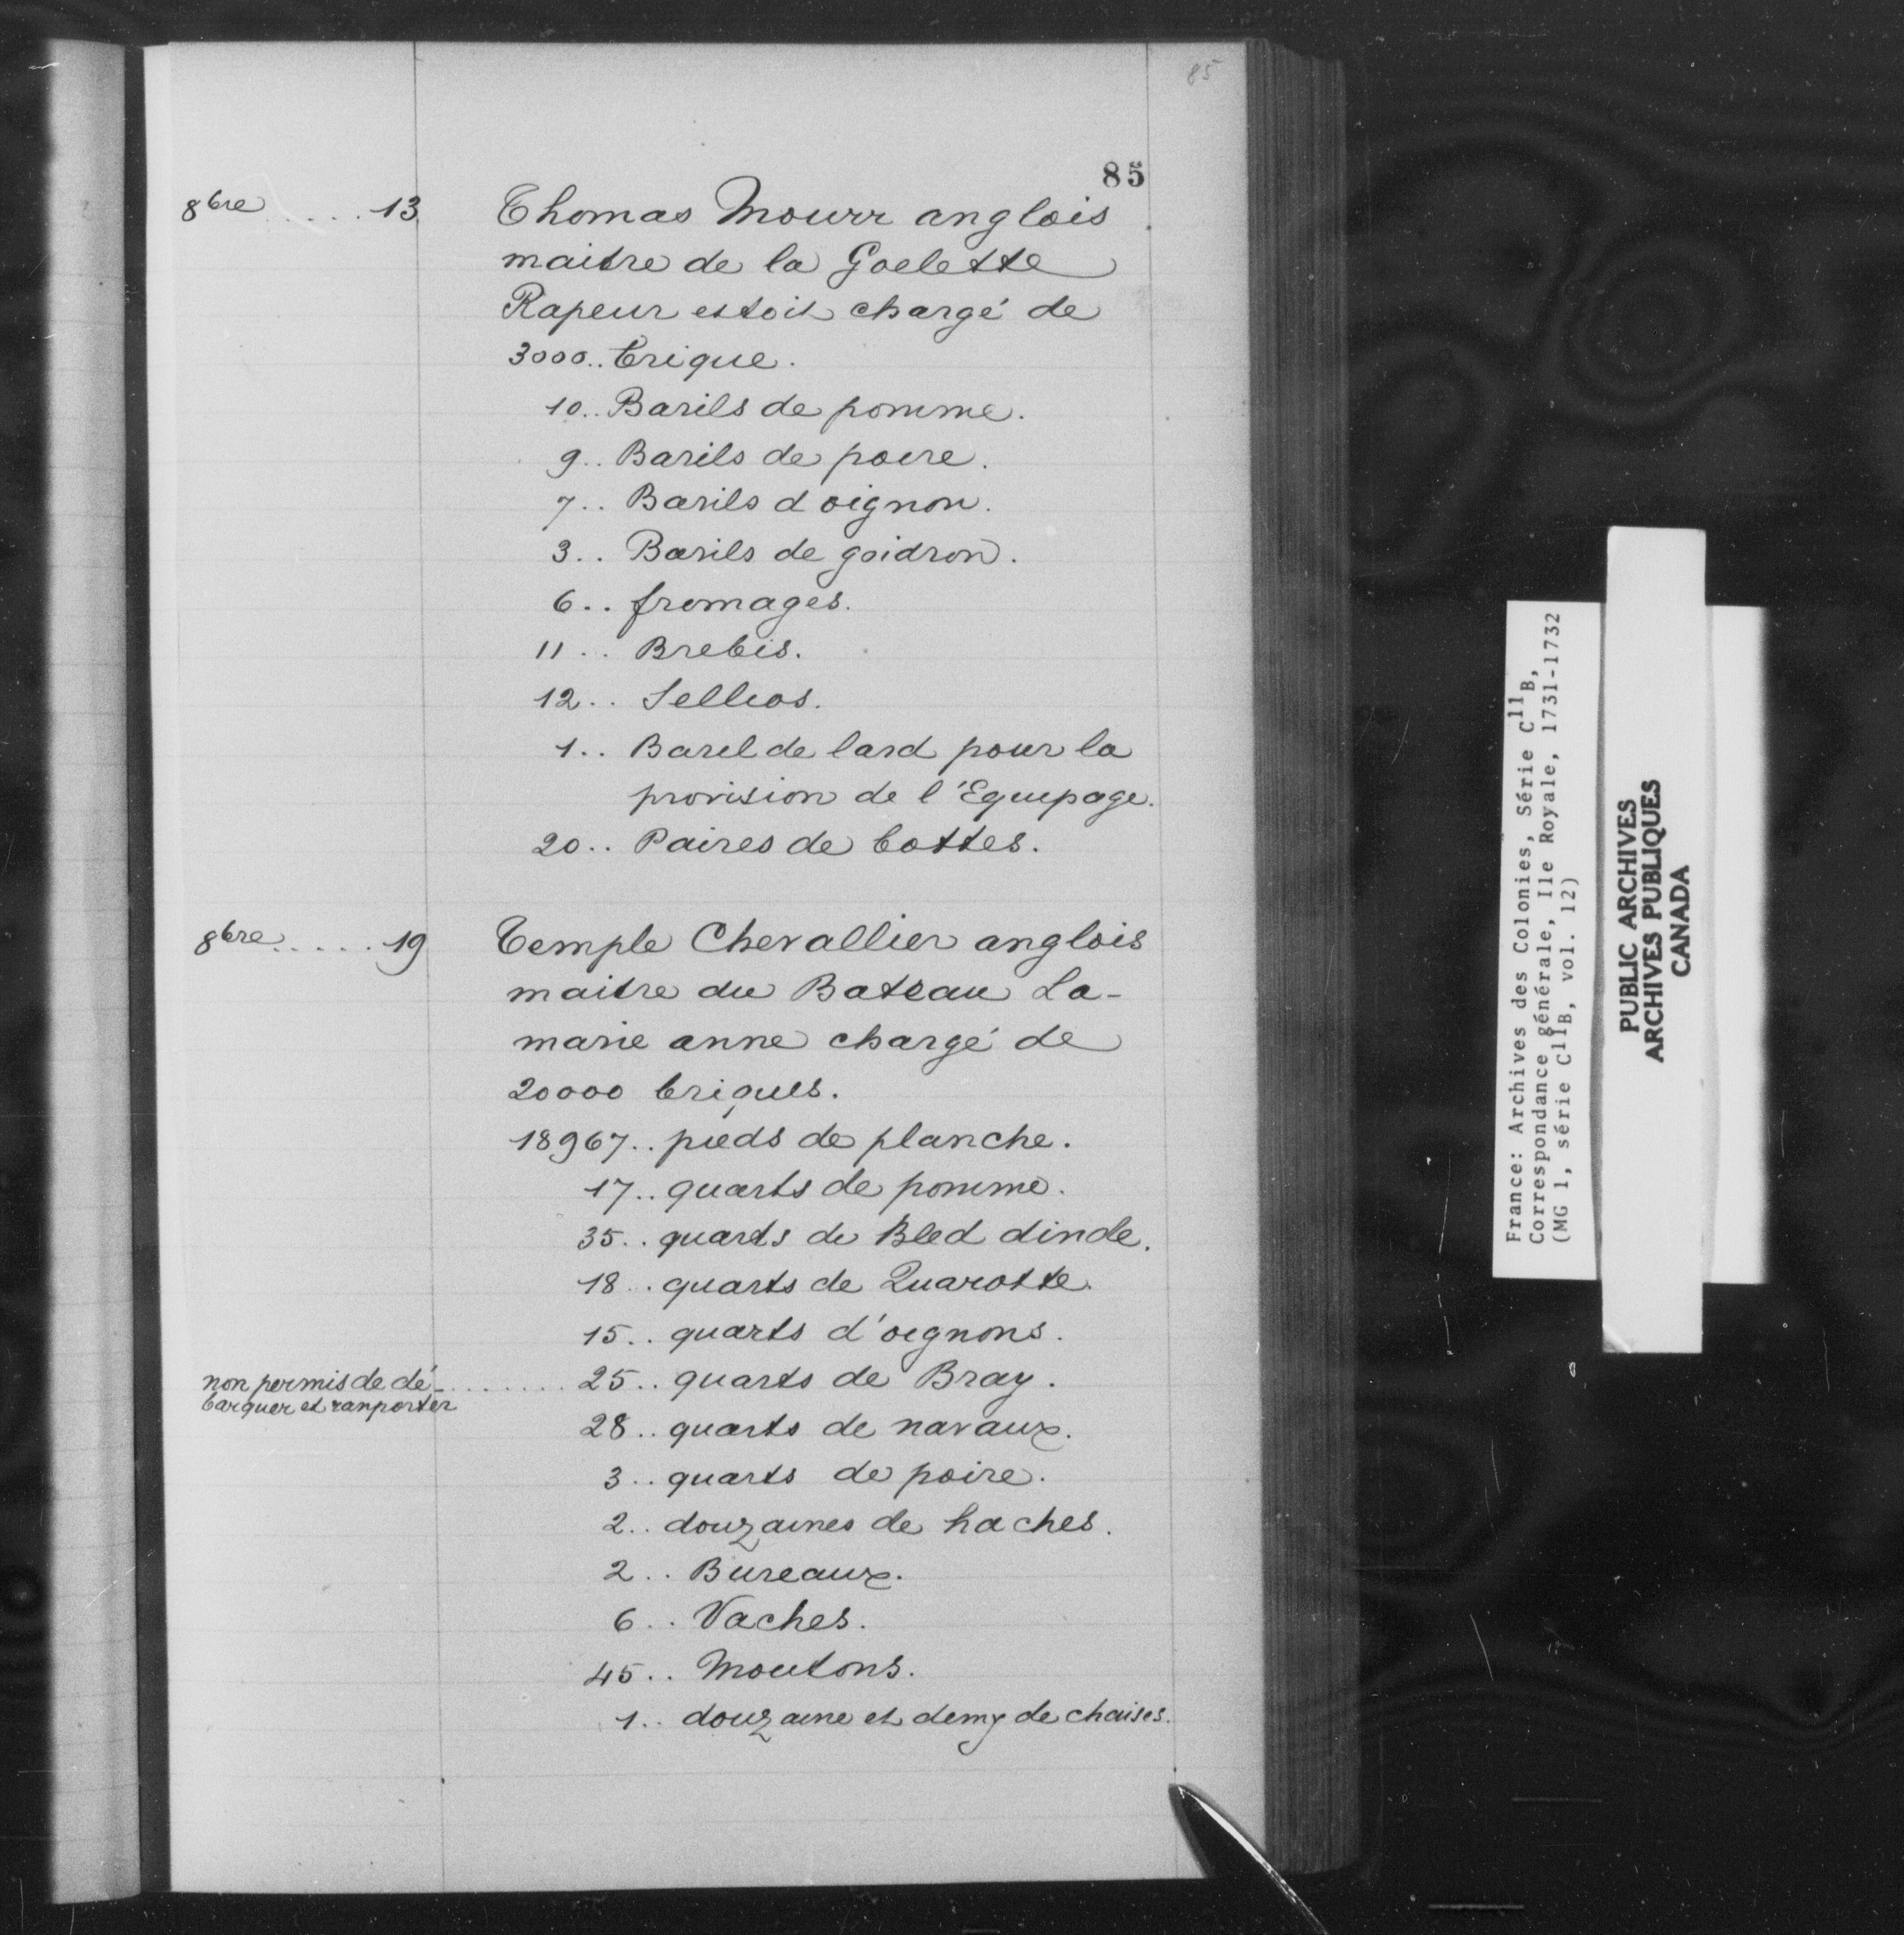 85
85
8bre ..... 13 Thomas Mourr anglois
maitre de la Goelette
Rapeur estoit chargé de
3000.. brique.
10.. Barils de pomme.
9.. Barils de poire.
7.. Barils d oignon.
3.. Barils de goidron.
6.. fromages.
11.. Brebis.
12.. Sellios.
1.. Baril de lard pour la
provision de l'Equipage.
20.. Paires de bottes.
8bre ..... 19 Temple Chevallier anglois
maitre du Bateau La-
marie anne chargé de
20000 briques.
18967.. pieds de planche.
17.. quarts de pomme.
35.. quarts de Bled dinde.
18.. quarts de Quarotte.
15.. quarts d'oignons.
non permis de dé- ........ 25.. quarts de Bray.
barquer et ranporter
28.. quarts de navaux.
3.. quarts de poire.
2.. douzaines de haches.
2.. Bureaux.
6.. Vaches.
45.. Moutons.
1.. douzaine et demy de chaises.
France: Archives des Colonies, Série C11B,
Correspondance générale, Ile Royale, 1731-1732
(MG 1, série C11B, vol. 12)
PUBLIC ARCHIVES
ARCHIVES PUBLIQUES
CANADA